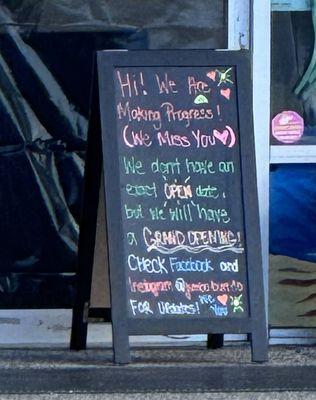 Hi! We Are
Making Progress!
(We Miss You♥)
We don't have an
exact OPEN date,
but we will have
a GRAND OPENING!
CHECK Facebook and
Instagram
FOR Updates! We ♥ You